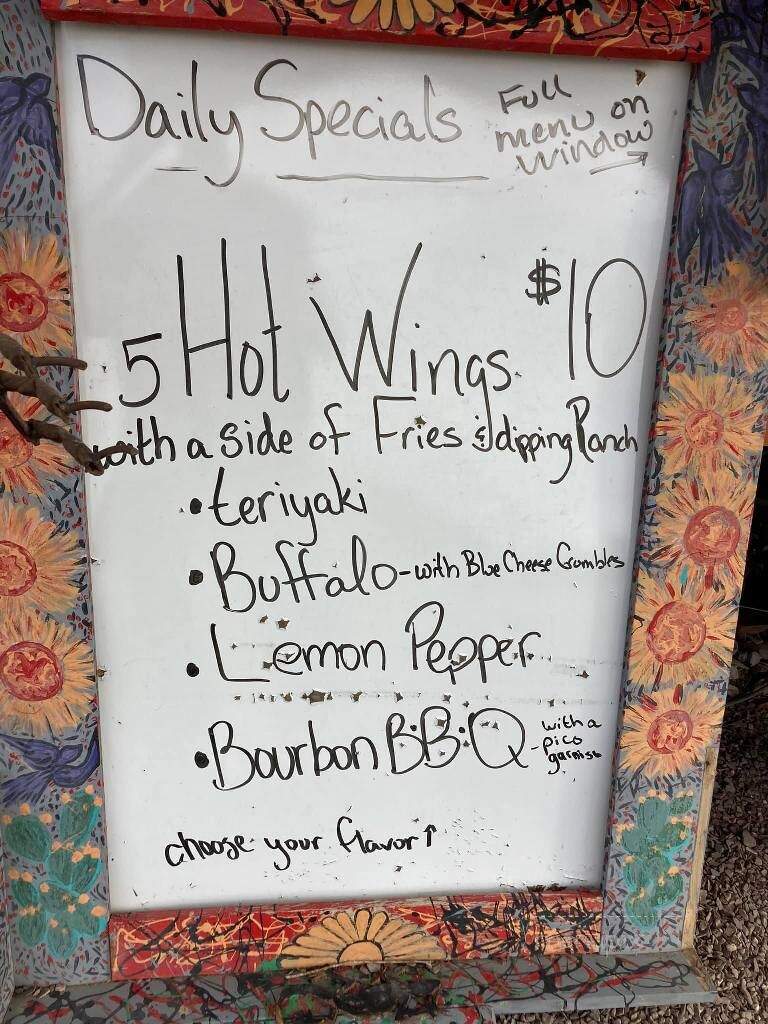 Daily Specials
Full
menu on
window
5 Hot Wings $10
with a side of Fries & dipping Ranch
• teriyaki
• Buffalo - with Blue Cheese Crumbles
• Lemon Pepper
• Bourbon B.B.Q - with a
pico
garnish
choose your flavor ↑